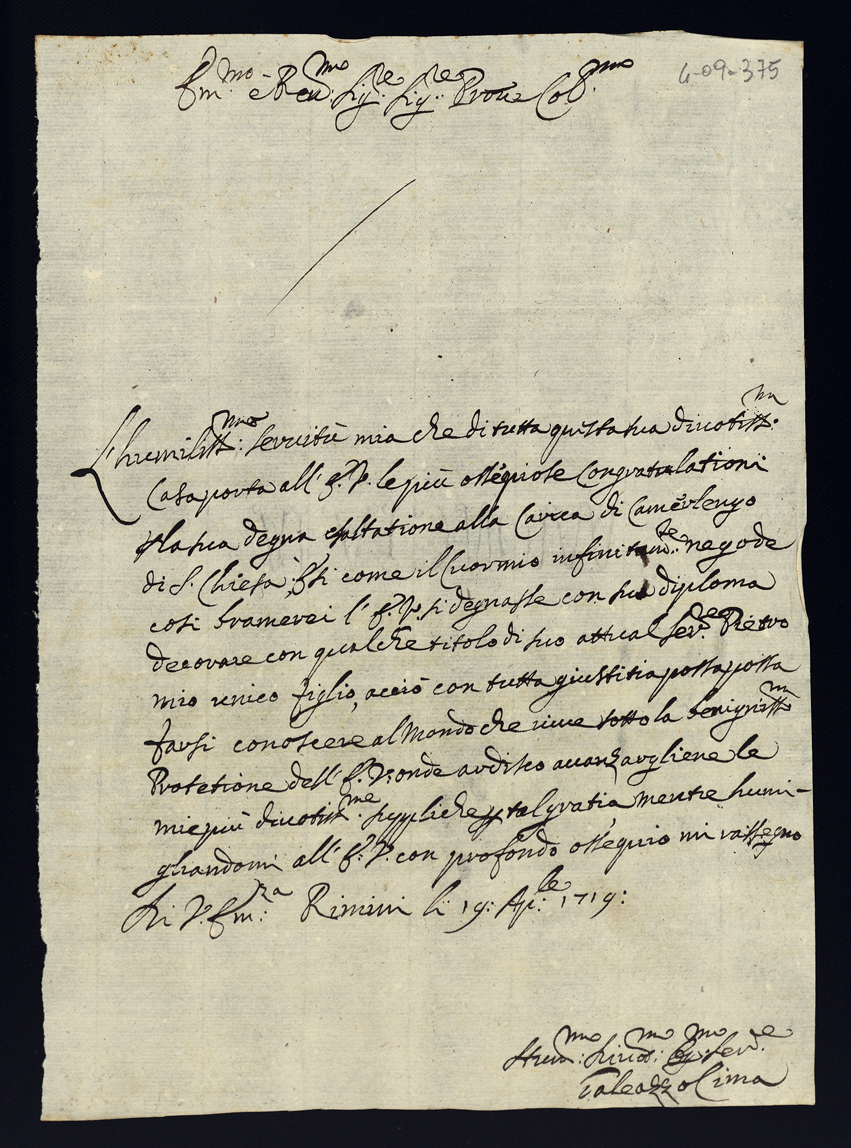 6-09-375
Em.mo e Reu.mo Sig.re Sig.re Pron.e Col.mo
L'humiliss.mo seruitù mia che di tutta questa sua diuotiss.ma
Casa porta all' E. V. le più ossequiose Congratulationi
p la sua degna esaltatione alla Carica di Camerlengo
di S. Chiesa, E si come il Cuor mio infinitam.te ne gode
cosi bramerei l' E. V. si degnasse con suo diploma
decorare con qualche titolo di suo attual Ser.re Pietro
mio unico figlio, acciò con tutta giustitia possa
farsi conoscere al Mondo che uiue sotto la benigniss.ma
Protetione dell' E. V. onde ardisco auanzargliene le
mie più diuotiss.me suppliche p tal gratia mentre humi-
gliandomi all' E. V. con profondo ossequio mi rassegno
Di V. Em.za Rimini li 19: Ap.le 1719:
Hum.mo Diuo.mo Ser.e
Galeazzo Cima